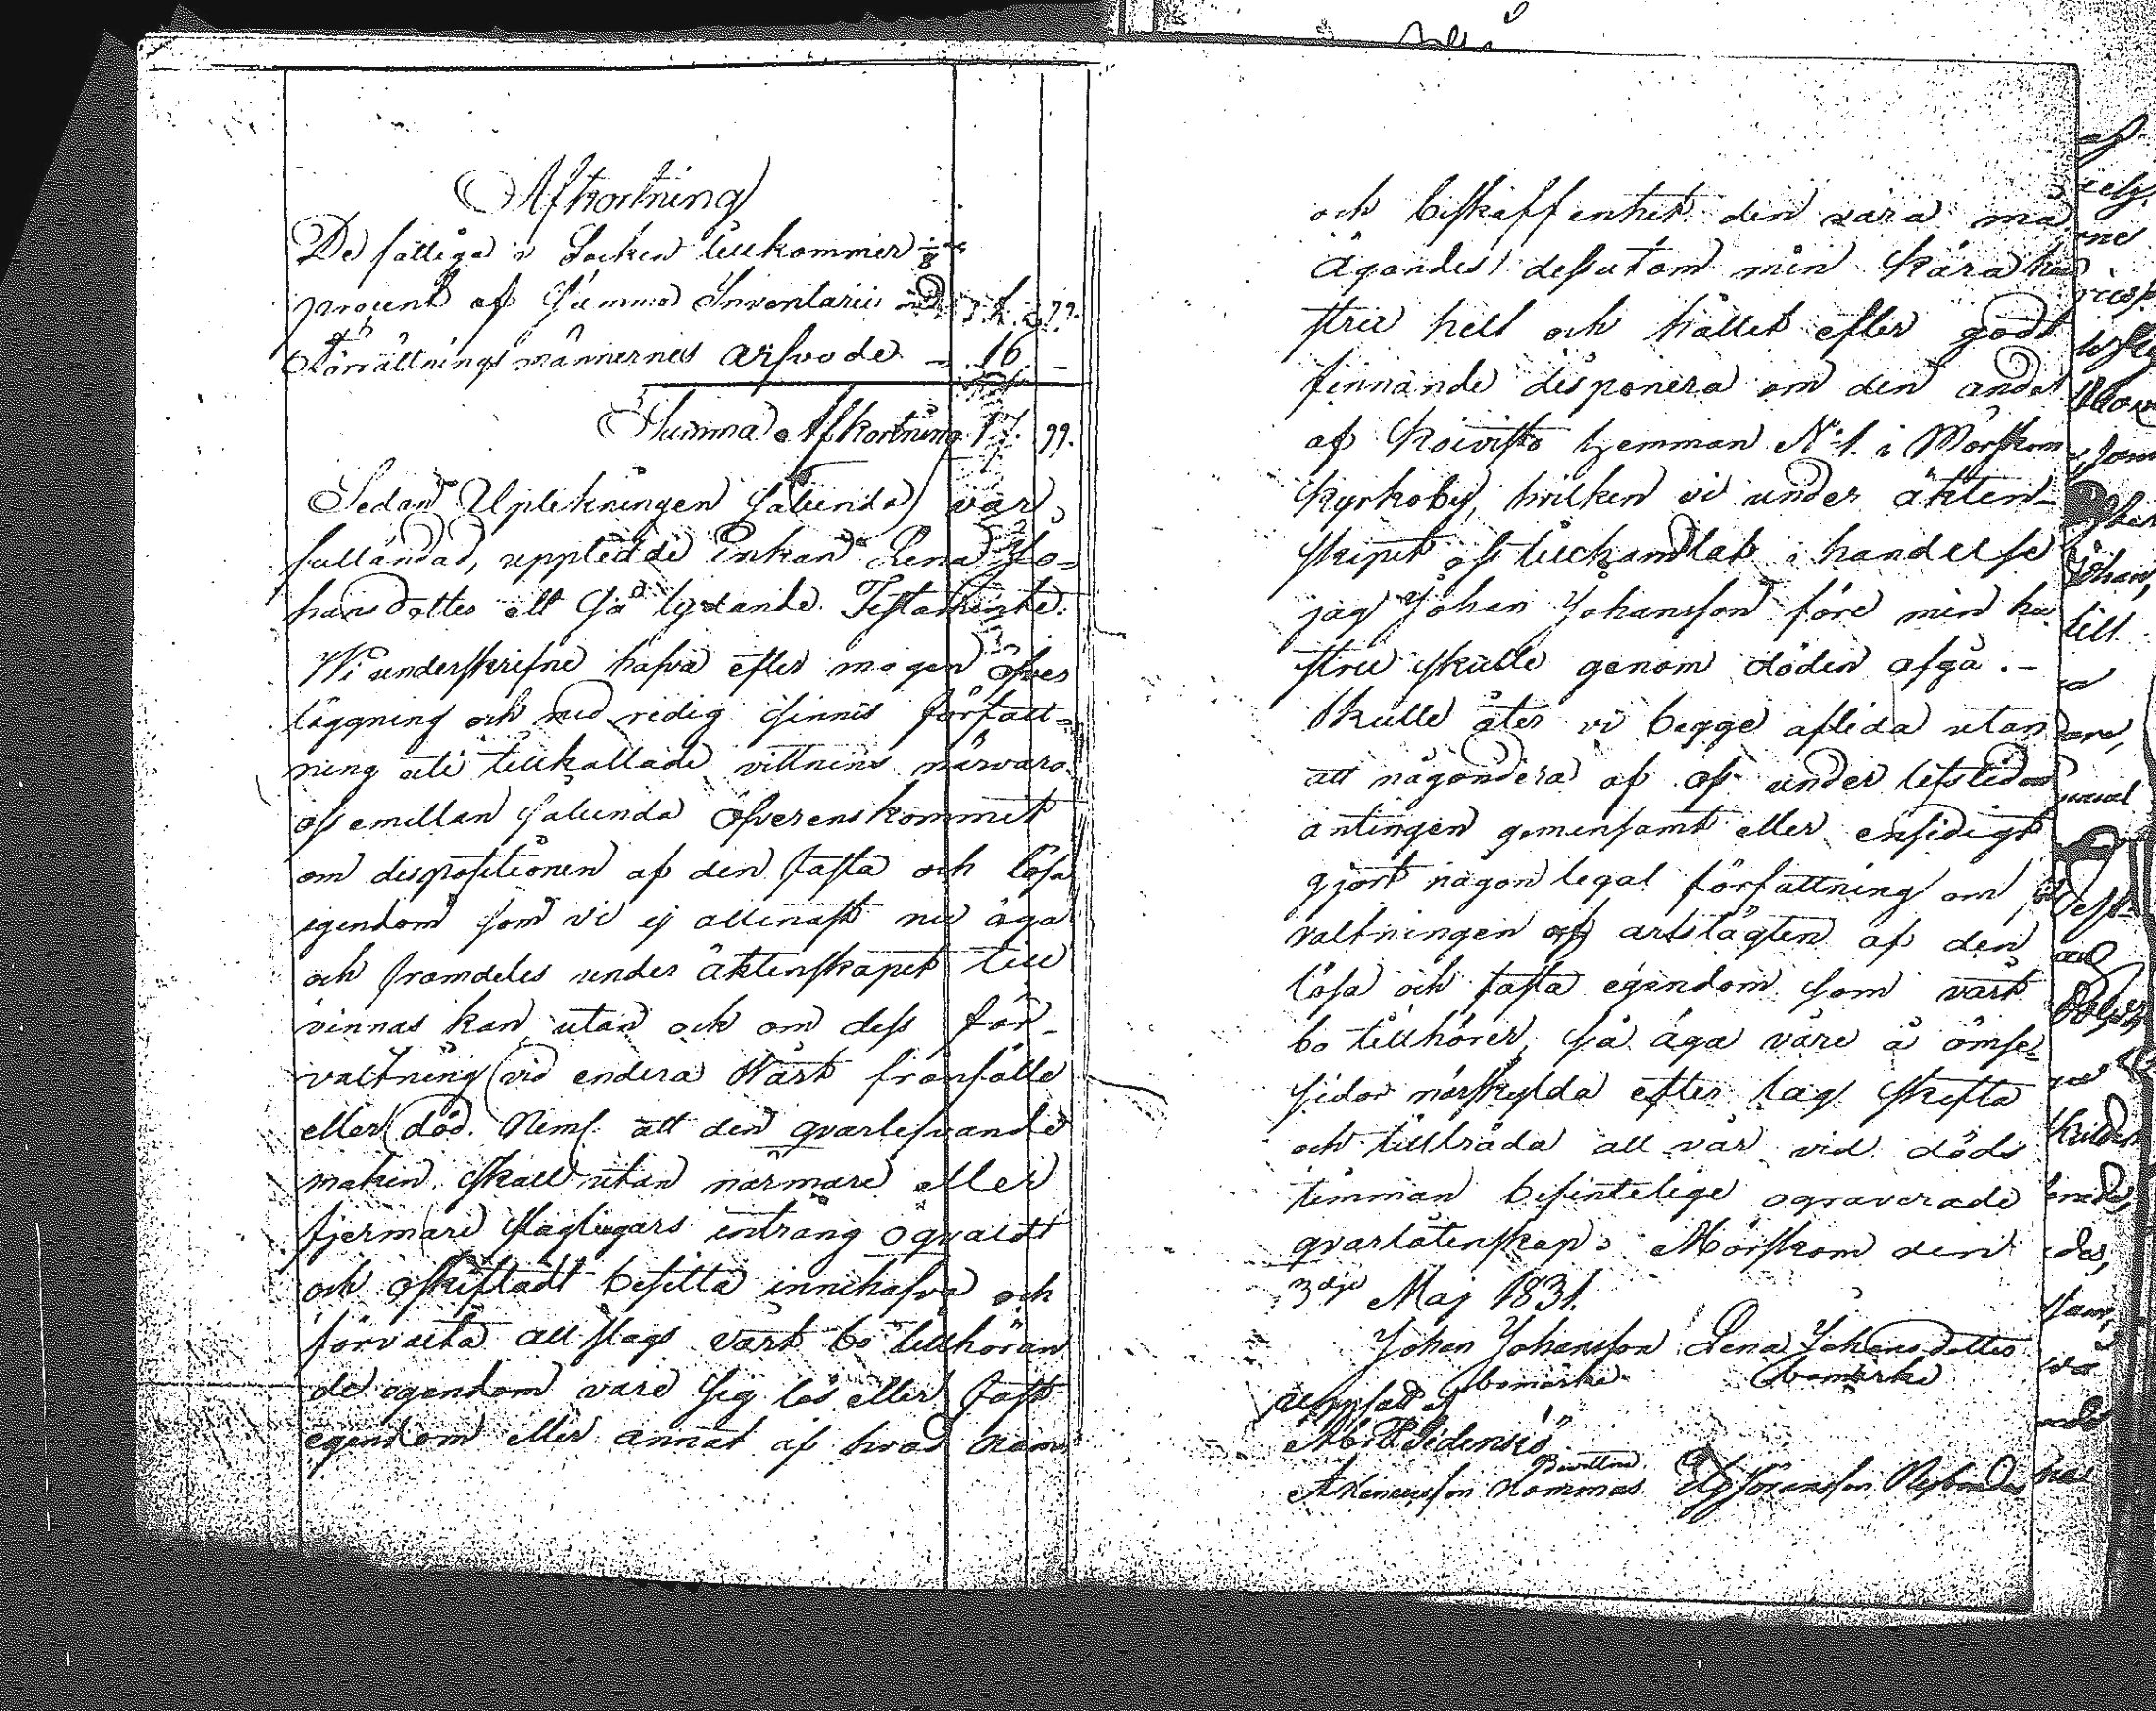 Afkortning
De fattiga i Socken tillkommer 1/8
procent af Summa Inventarii 1. 99.
Förrättningsmännernes arfvode — 16 –
Summa Afkortning 17. 99.
Sedan Uptekningen sålunda var
fulländad, uppledde Enkan Lena Jo=
hansdotter ett så lydande Testamente:
Wi underskrifne hafva efter mogen öfver
läggning och med redig sinnes författ=
ning uti tillkallade vittnens närvaro
oss emillan sålunda öfverenskommit
om dispositionen af den fasta och lösa
egendom som vi ej allenast nu äga
och framdeles under äktenskapet till
vinnas kan utan och om dess för-
valtning vid endera vårt frånfälle
eller död. Neml. att den qvarlefvande
maken skall utan närmare eller
fjermare slagtingars intrång oqvaldt
och oskiftadt besitta innehafva och
förvalta all slags vårt bo tillhöran
de egendom vare sig lös eller fast
egendom eller annat af hvad nam
och beskaffenhet den vara må
Ägandes dessutom min kära hu
stru helt och hållet efter godt
finnande disponera om den andel
af Koivisto hemman N:1. i Mörskom
Kyrkoby, hvilken vi under äkten-
skapet oss tillhandlat i händelse
jag Johan Johansson före min hu
stru skulle genom döden afgå. –
Skulle åter vi begge aflida utan
att någondera af oss under lifstiden
antingen gemensamt eller ensidigt
gjort någon legal författning om för
valtningen och arfstägten af den
lösa och fasta egendom som vårt
bo tillhörer, så äga våre å ömse=
sidor närskylda efter lag skifta
och tillträda all vår vid döds
timman befintelige ograverade
qvarlåtenskap. Mörskom den
3dje Maj 1831.
Johan Johansson Lena Johansdotter
bomärke bomärke
Bevittna
Hommas